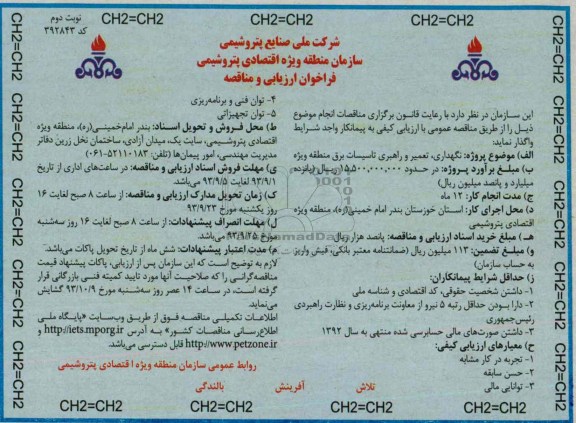 نوبت دوم
کد ۳۹۲۸۴۳
CH2=CH2 CH2=CH2 CH2=CH2 CH2=CH2
شرکت ملی صنایع پتروشیمی
سازمان منطقه ویژه اقتصادی پتروشیمی
فراخوان ارزیابی و مناقصه
این سازمان در نظر دارد با رعایت قانون برگزاری مناقصات انجام موضوع
ذیل را از طریق مناقصه عمومی با ارزیابی کیفی به پیمانکار واجد شرایط
واگذار نماید:
الف) موضوع پروژه: نگهداری، تعمیر و راهبری تاسیسات برق منطقه ویژه
ب) مبلغ برآورد پروژه: در حدود ۱۵,۵۰۰,۰۰۰,۰۰۰ ریال (پانزده
میلیارد و پانصد میلیون ریال)
ج) مدت انجام کار: ۱۲ ماه
د) محل اجرای کار: استان خوزستان بندر امام خمینی(ره)، منطقه ویژه
اقتصادی پتروشیمی
هـ) مبلغ خرید اسناد ارزیابی و مناقصه: پانصد هزار ریال
و) مبلغ تضمین: ۱۱۳ میلیون ریال (ضمانتنامه معتبر بانکی، فیش واریز
به حساب سازمان)
ز) حداقل شرایط پیمانکاران:
۱- داشتن شخصیت حقوقی، کد اقتصادی و شناسه ملی
۲- دارا بودن حداقل رتبه ۵ نیرو از معاونت برنامه‌ریزی و نظارت راهبردی
رئیس‌جمهوری
۳- داشتن صورت‌های مالی حسابرسی شده منتهی به سال ۱۳۹۲
ح) معیارهای ارزیابی کیفی:
۱- تجربه در کار مشابه
۲- حسن سابقه
۳- توانایی مالی
۴- توان فنی و برنامه‌ریزی
۵- توان تجهیزاتی
ط) محل فروش و تحویل اسناد: بندر امام‌خمینی(ره)، منطقه ویژه
اقتصادی پتروشیمی، سایت یک، میدان آزادی، ساختمان نخل زرین دفاتر
مدیریت مهندسی، امور پیمان‌ها (تلفن: ۵۲۱۱۰۱۸۳-۰۶۱)
ی) مهلت فروش اسناد ارزیابی و مناقصه: در ساعت‌های اداری از تاریخ
۹۳/۹/۱ لغایت ۹۳/۹/۵ می‌باشد.
ک) زمان تحویل مدارک ارزیابی و مناقصه: از ساعت ۸ صبح لغایت ۱۶
روز یکشنبه مورخ ۹۳/۹/۲۳
ل) مهلت انصراف پیشنهادات: از ساعت ۸ صبح لغایت ۱۶ روز سه‌شنبه
مورخ ۹۳/۹/۲۵ می‌باشد.
م) مدت اعتبار پیشنهادات: شش ماه از تاریخ تحویل پاکات می‌باشد.
لازم به توضیح است که این سازمان پس از ارزیابی، پاکات پیشنهاد قیمت
مناقصه‌گرانی را که صلاحیت آنها مورد تایید کمیته فنی بازرگانی قرار
گرفته است، در ساعت ۱۴ عصر روز سه‌شنبه مورخ ۹۳/۱۰/۹ گشایش
می‌نماید.
اطلاعات تکمیلی مناقصه فوق از طریق وب‌سایت «پایگاه ملی
اطلاع‌رسانی مناقصات کشور» به آدرس http://iets.mporg.ir و
http://www.petzone.ir قابل دسترسی می‌باشد.
روابط عمومی سازمان منطقه ویژه اقتصادی پتروشیمی
تلاش آفرینش بالندگی
CH2=CH2 CH2=CH2 CH2=CH2 CH2=CH2